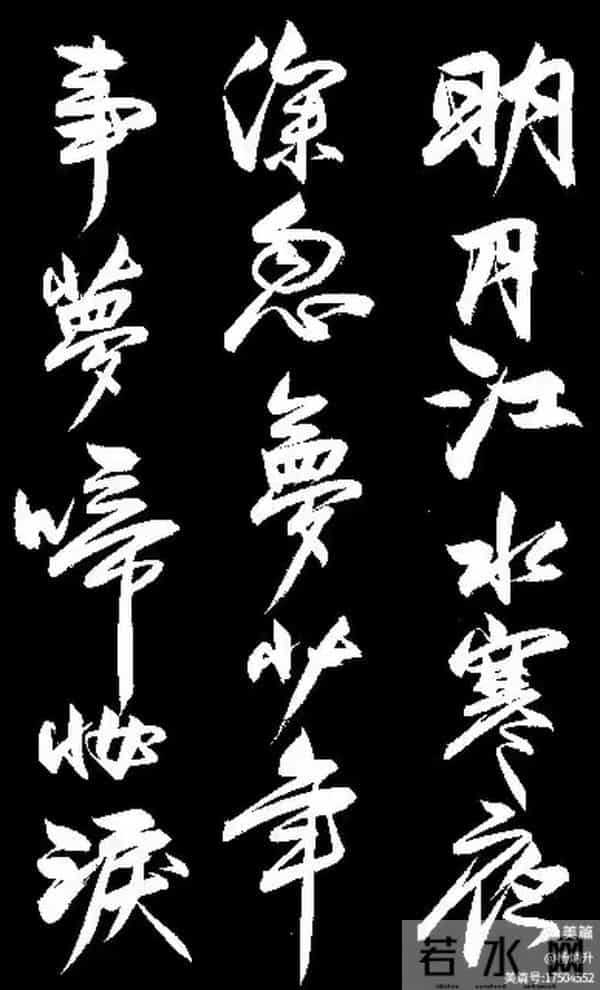 明月江水寒夜
深忽夢少年
事夢啼妝淚
美篇
若水网
美篇号:17504552